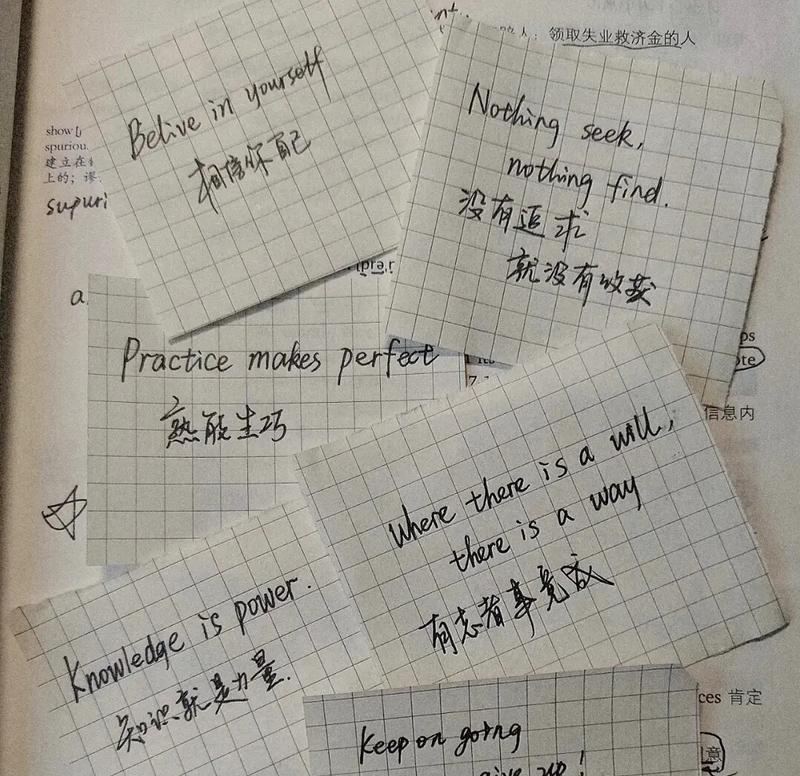 领取失业救济金的人
Belive in yourself
相信你自己
Nothing seek,
nothing find.
没有追求
就没有收获
show
spuriou
建立在
上的；谬
supuri
a
Practice makes perfect
熟能生巧
信息内
Where there is a will,
there is a way
有志者事竟成
Knowledge is power.
知识就是力量.
ces 肯定
Keep on going
give up!
意